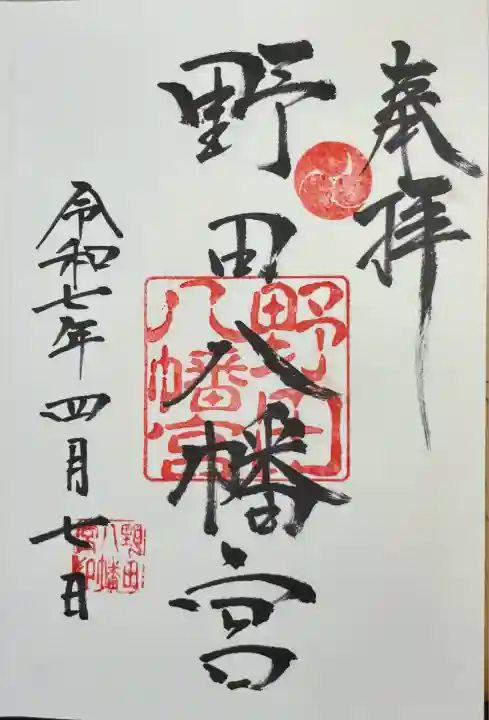 奉拝
野田八幡宮
野田八幡宮
令和七年四月七日
野田八幡宮印